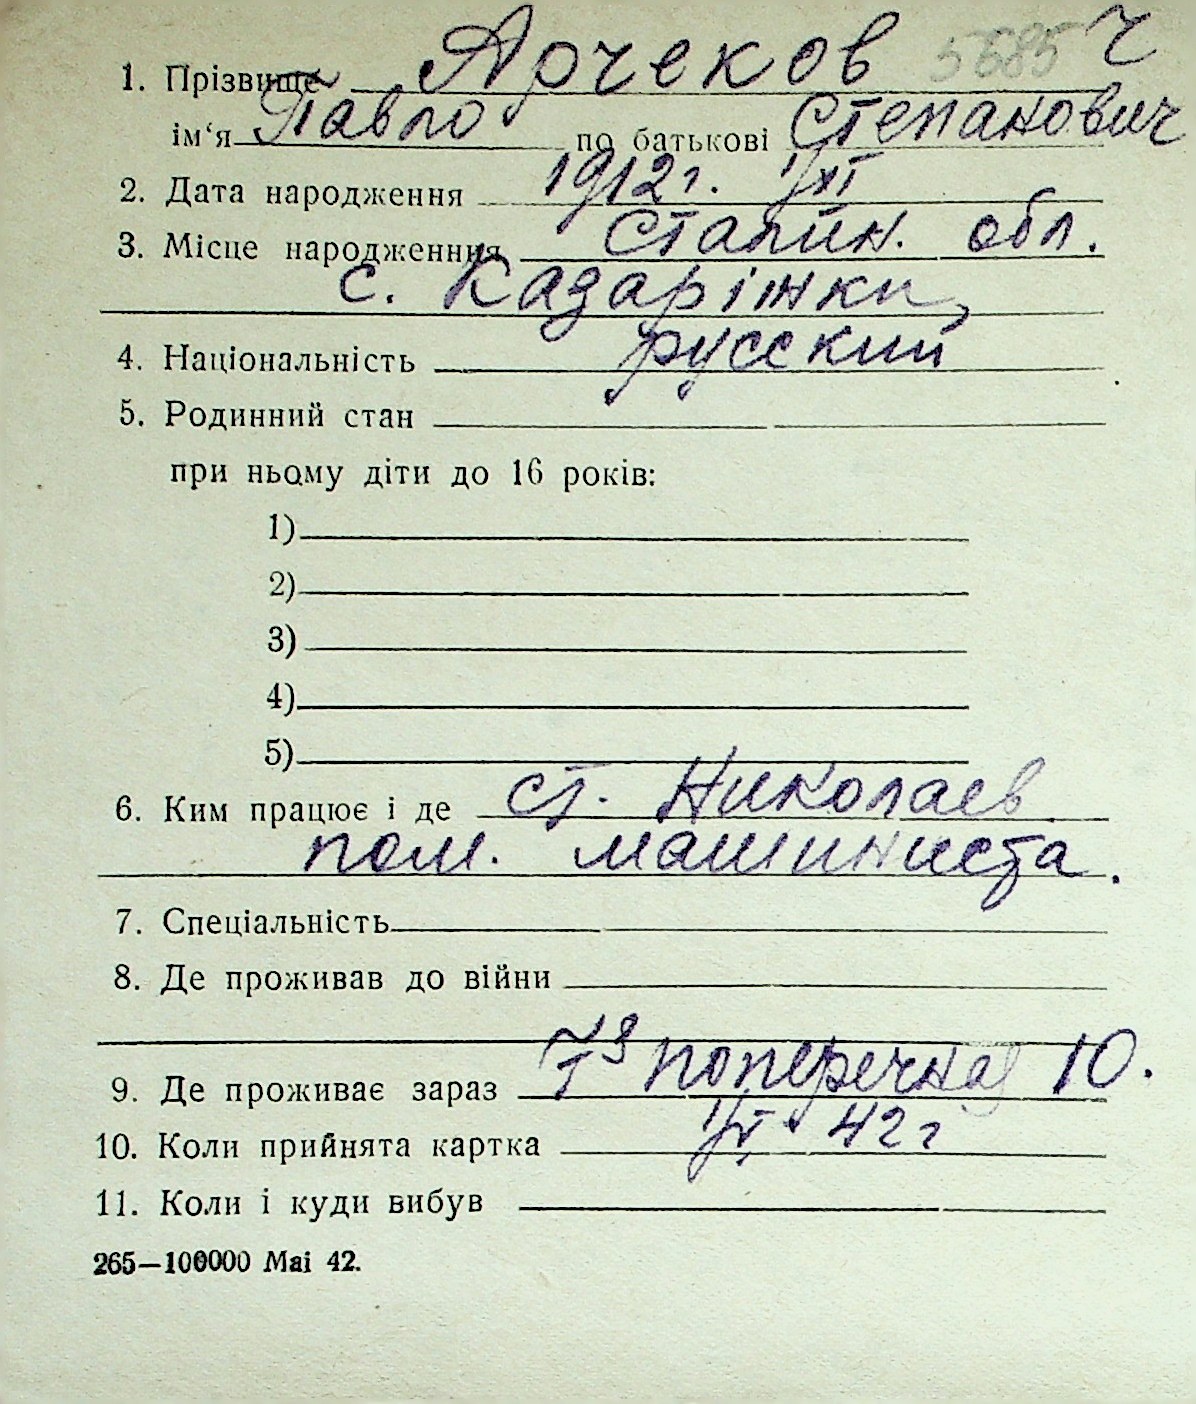 5685 Ч
1. Прізвище Арчеков
ім‘я Павло по батькові Степанович
2. Дата народження 1912 г. 1/XI
3. Місце народженння Сталин. обл.
с. Казаріжки,
4. Національність русский
5. Родинний стан
при ньому діти до 16 років:
1)
2)
3)
4)
5)
6. Ким працює і де ст. Николаев
пом. машиниста.
7. Спеціальність
8. Де проживав до війни
9. Де проживає зараз поперечная 10.
10. Коли прийнята картка 42 г
11. Коли і куди вибув
265—100000 Mai 42.